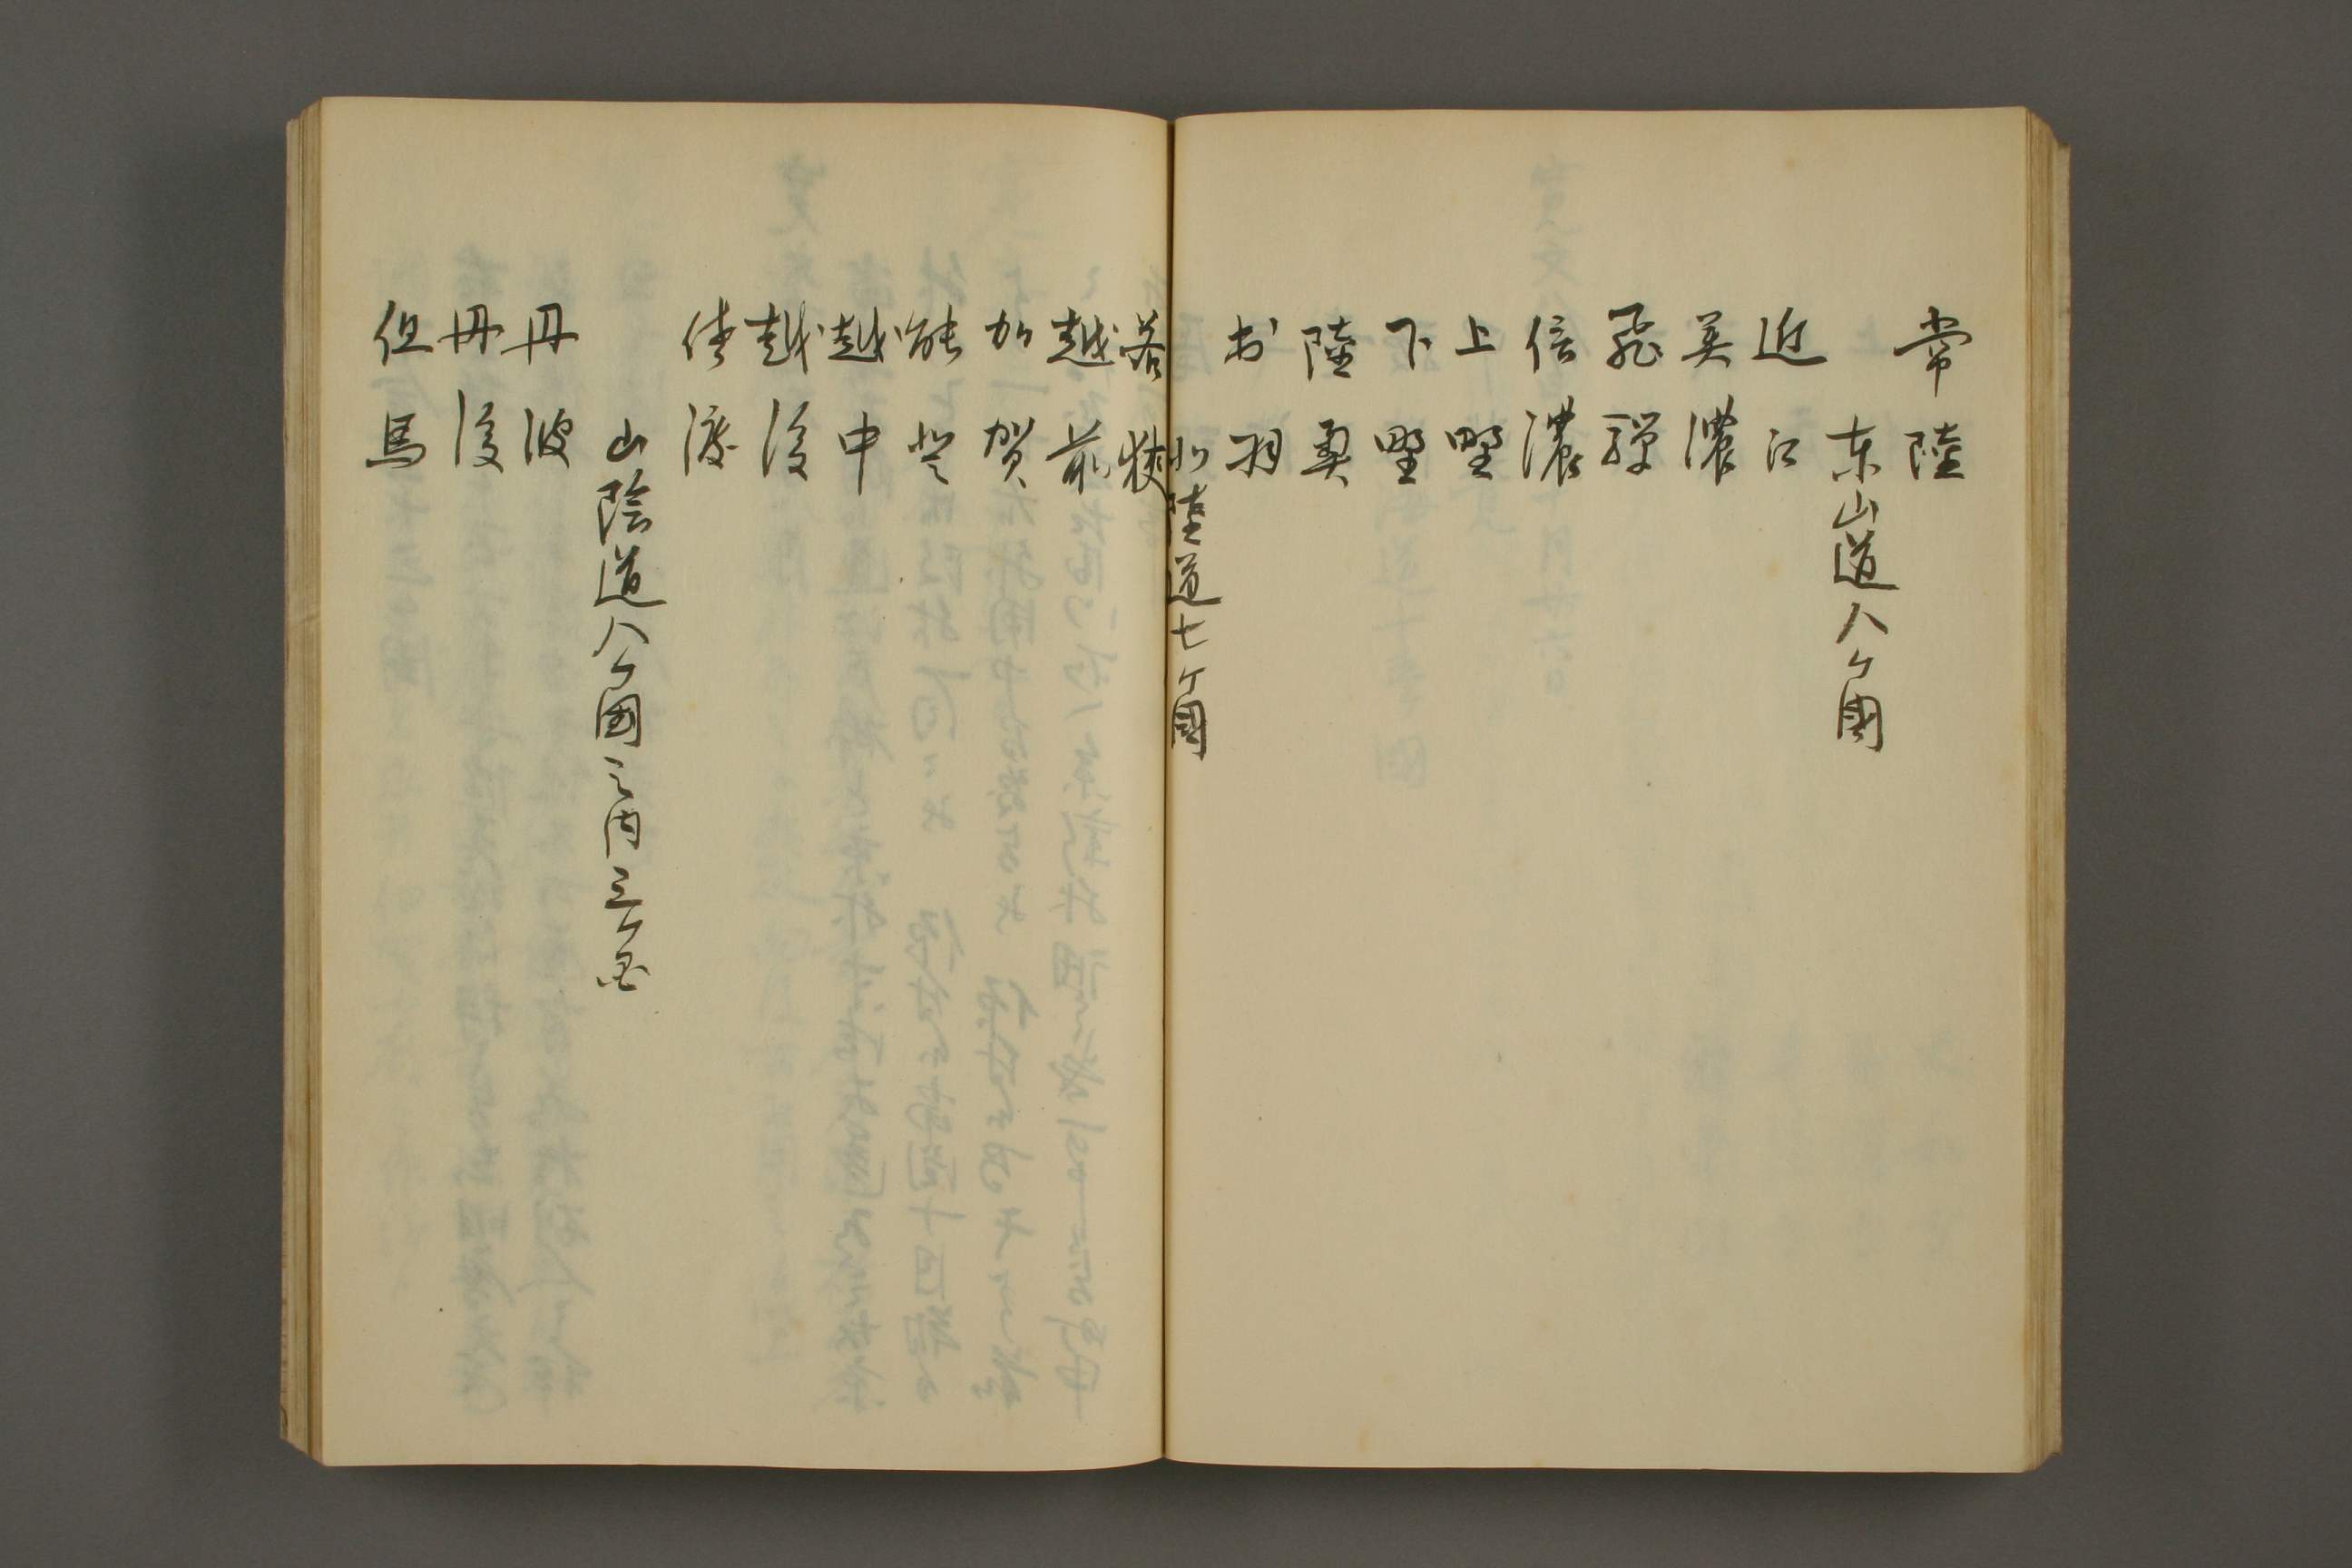 常陸
東山道八ケ國
近江
美濃
飛騨
信濃
上野
下野
陸奥
出羽
北陸道七ケ國
若狭
越前
加賀
能登
越中
越後
佐渡
山陰道八ケ國之内三ケ国
丹波
丹後
但馬